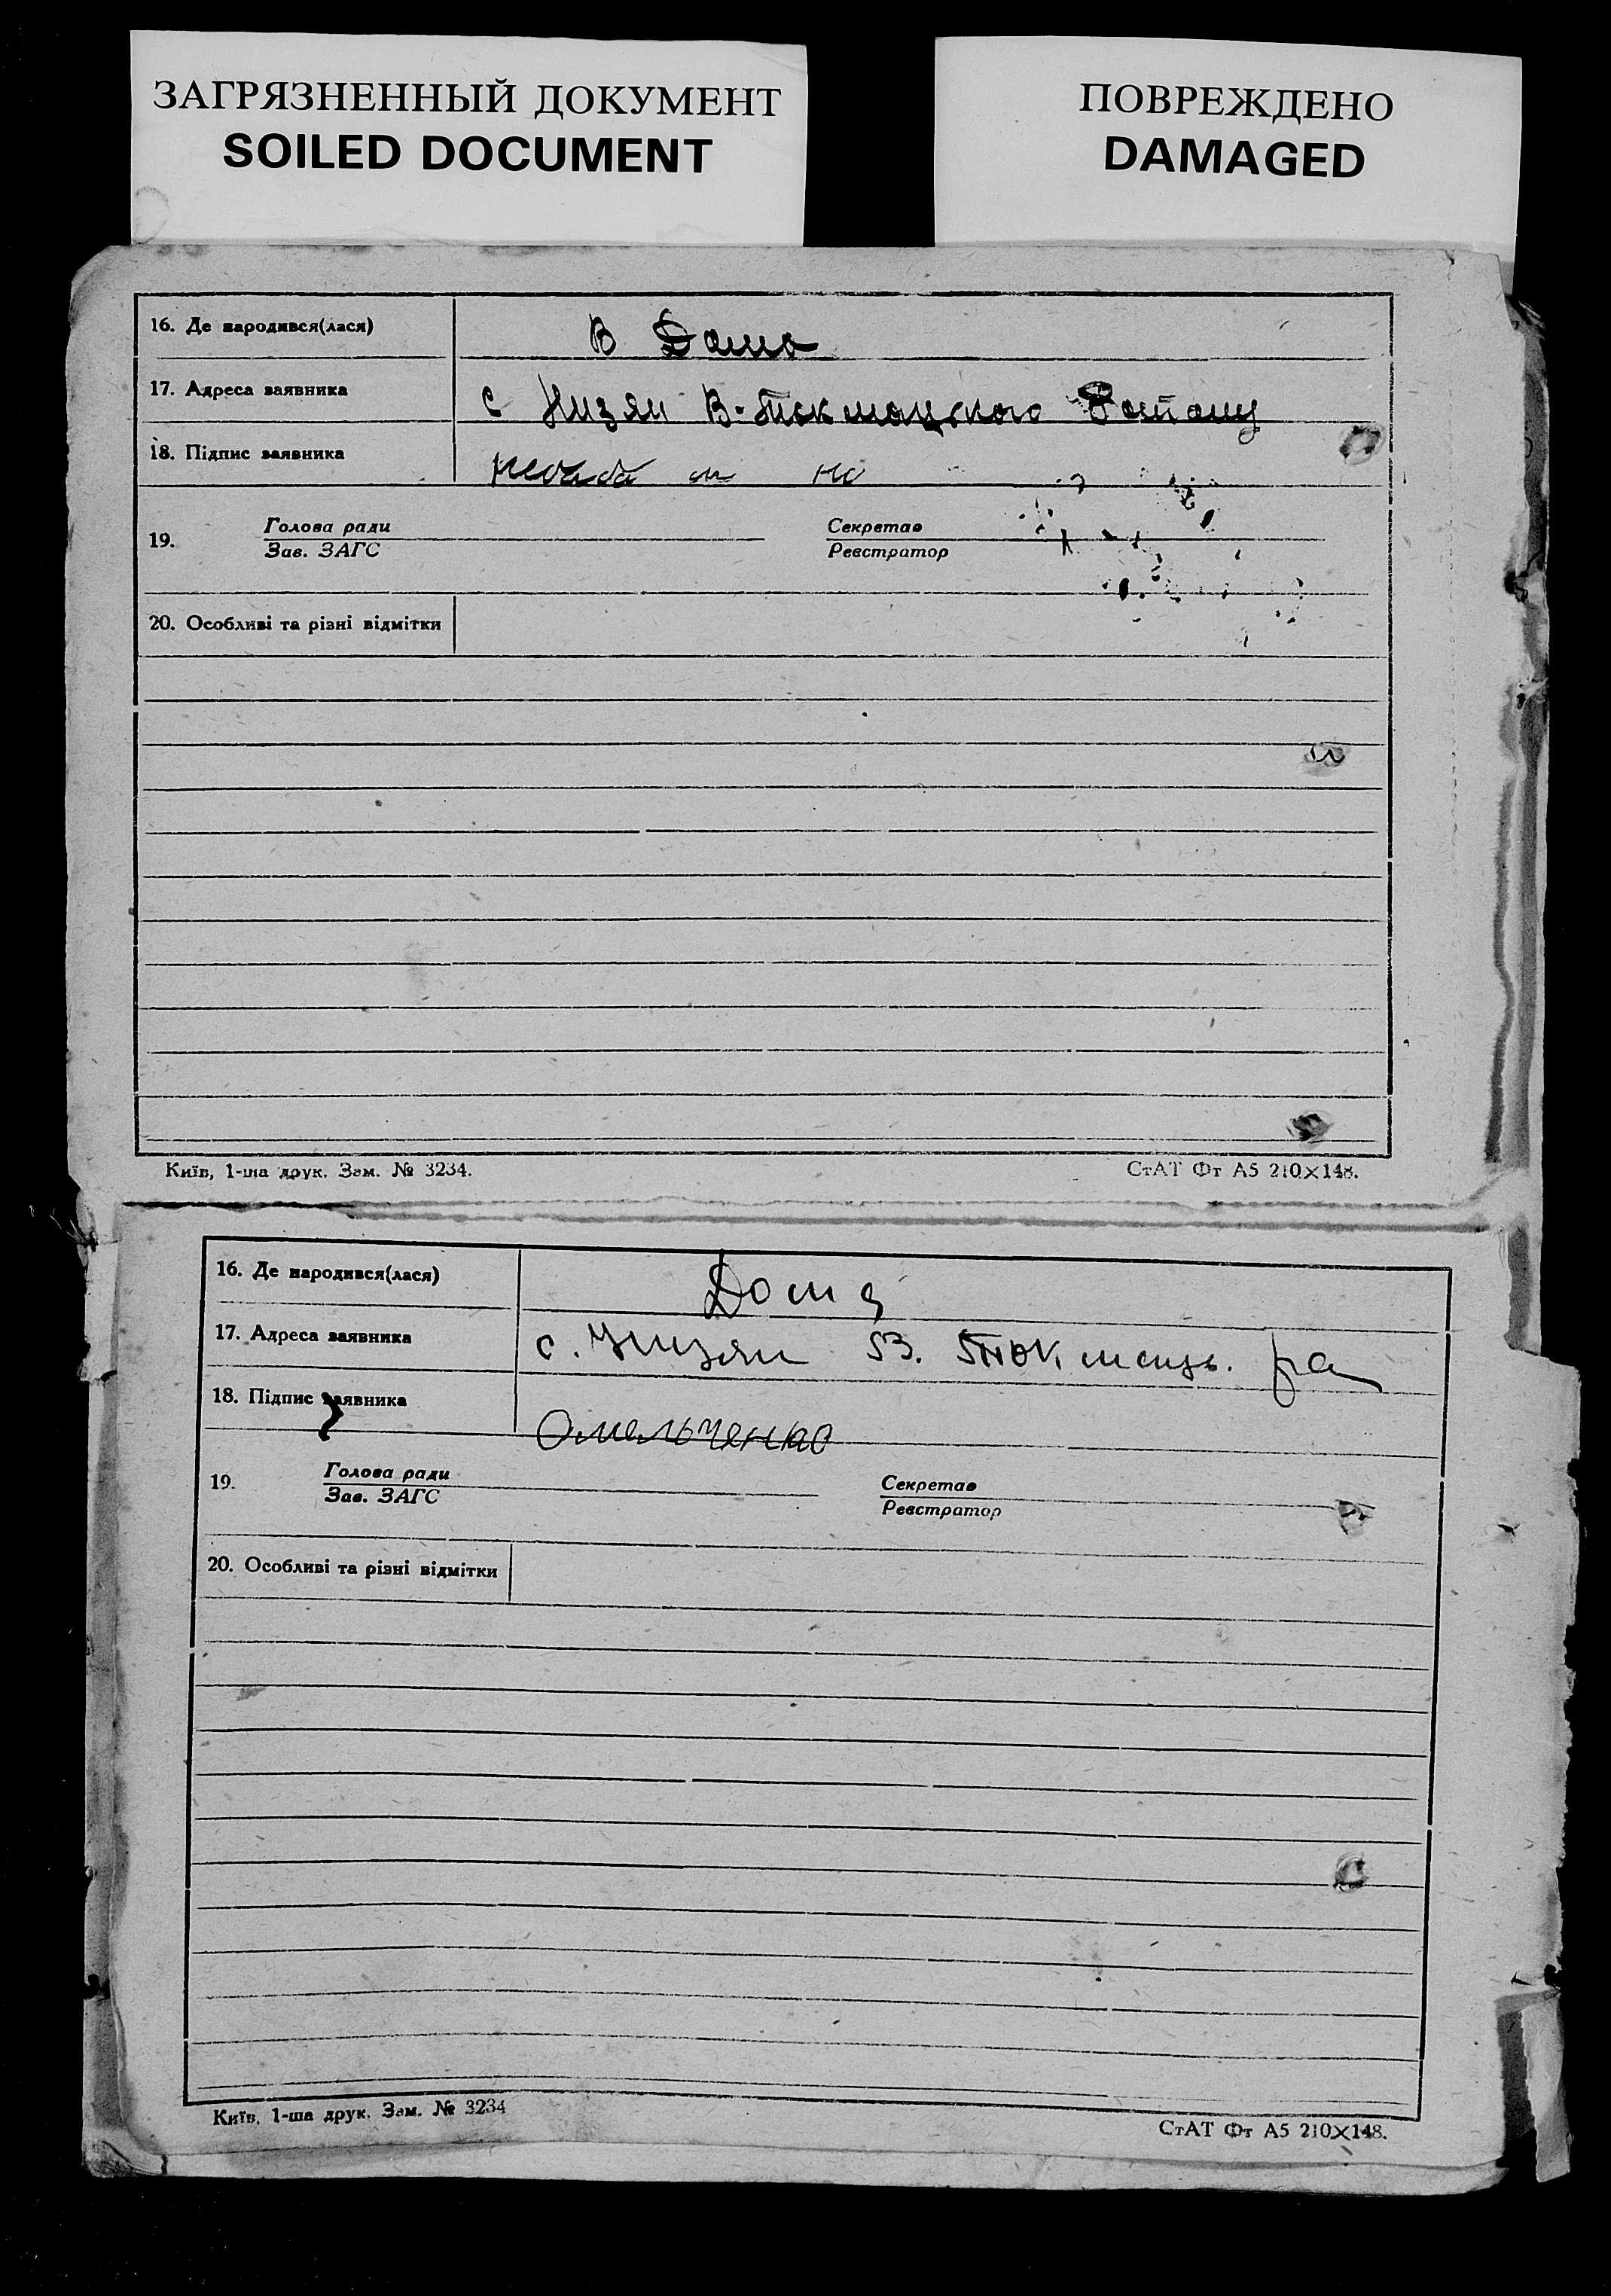 ЗАГРЯЗНЕННЫЙ ДОКУМЕНТ
SOILED DOCUMENT
ПОВРЕЖДЕНО
DAMAGED
16. Де народився(лася)
В Дома
17. Адреса заявника
с Низян В-Токмацкого
18. Підпис заявника
19.
Голова ради
Зав. ЗАГС
Секретар
Реєстратор
20. Особливі та різні відмітки
Київ, 1-ша друк. Зам. № 3234.
СтАТ Фт А5 210×148.
16. Де народився(лася)
Дома
17. Адреса заявника
с. Низян В. Токмацьк. ра
18. Підпис заявника
Омельченко
19.
Голова ради
Зав. ЗАГС
Секретар
Реєстратор
20. Особливі та різні відмітки
Київ, 1-ша друк. Зам. № 3234
СтАТ Фт А5 210×148.